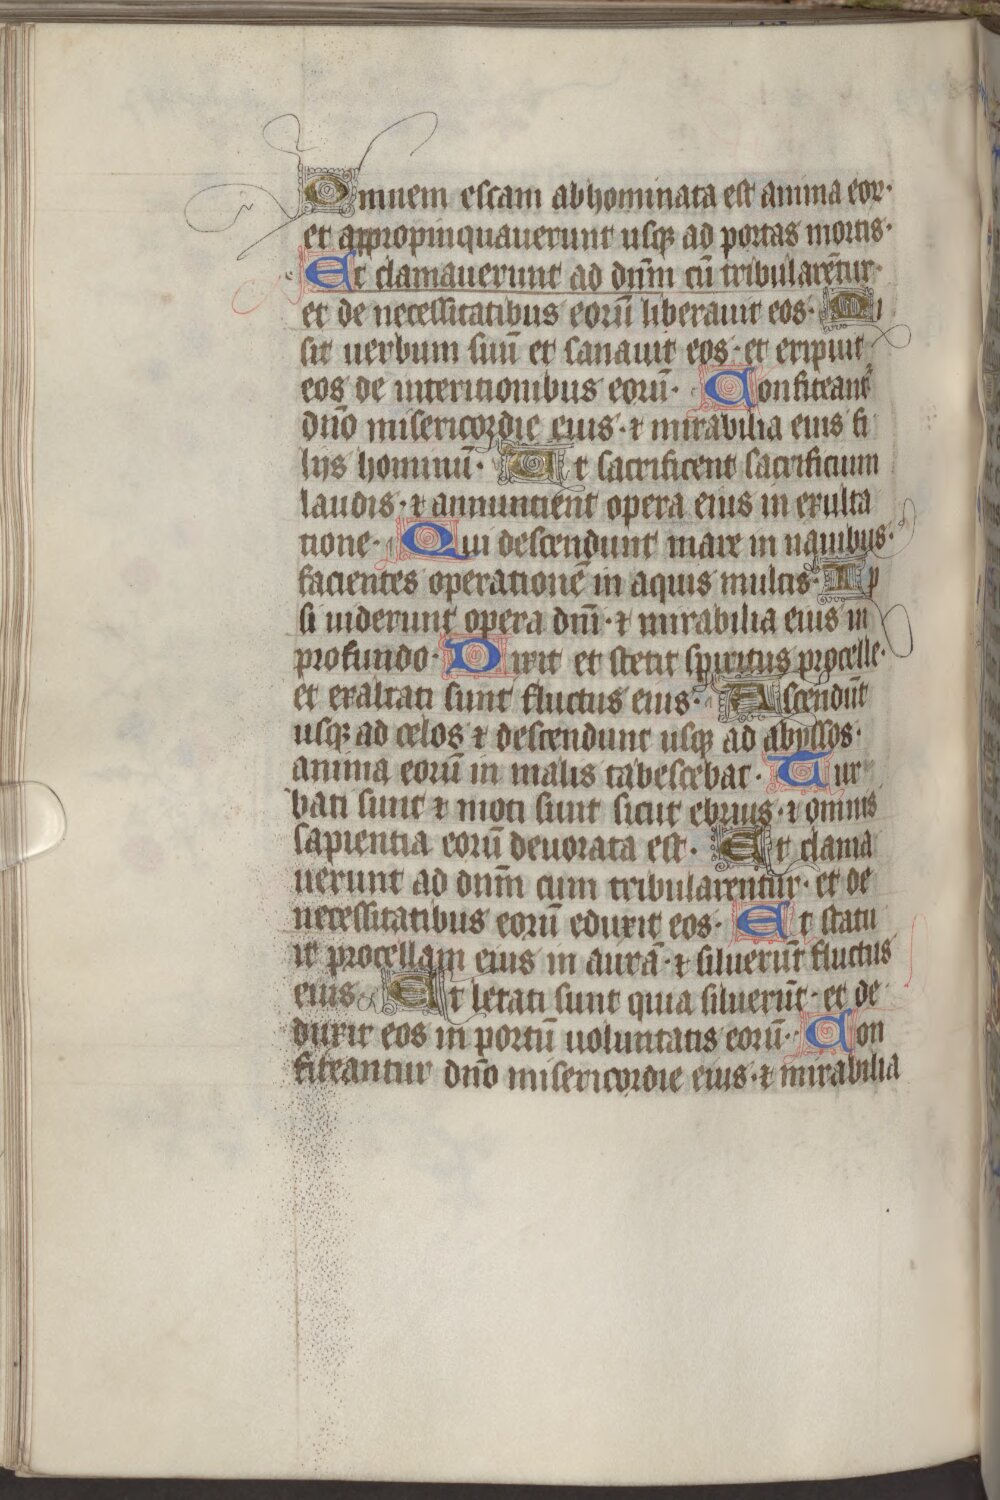 Omnem escam abhominata est anima eoꝝ·
et appropinquauerunt usqꝫ ad portas mortis·
Et clamauerunt ad dn̄m cū tribularent̄ur·
et de necessitatibus eorū liberauit eos· Mi
sit uerbum suū et sanauit eos· et eripuit
eos de interitionibus eorū· Confiteant᷑
dn̄o misericordie eius· ⁊ mirabilia eius fi
lijs hominū· Et sacrificent sacrificium
laudis· ⁊ annuntient opera eius in exulta
tione· Qui descendunt mare in nauibus·
facientes operationē in aquis multis· Ip
si uiderunt opera dn̄i· ⁊ mirabilia eius in
profundo· Dixit et stetit spiritus procelle·
et exaltati sunt fluctus eius· Ascendūt
usqꝫ ad celos ⁊ descendunt usqꝫ ad abyssos·
anima eorū in malis tabescebat· Tur
bati sunt ⁊ moti sunt sicut ebrius· ⁊ omnis
sapientia eorū deuorata est· Et clama
uerunt ad dn̄m cum tribularentur· et de
necessitatibus eorū eduxit eos· Et statu
it procellam eius in aurā· ⁊ siluerūt fluctus
eius· Et letati sunt quia siluerūt· et de
duxit eos in portū uoluntatis eorū· Con
fiteantur dn̄o misericordie eius· ⁊ mirabilia